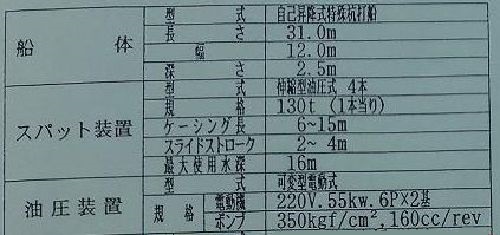 船体 型式 自己昇降式特殊杭打船
長さ 31.0m
幅 12.0m
深さ 2.5m
スパット装置 型式 伸縮型油圧式 4本
規格 130t (1本当り)
ケーシング長 6~15m
スライドストローク 2~4m
最大使用水深 16m
油圧装置 型式 可変型電動式
規格 電動機 220V.55kw.6P×2基
ポンプ 350kgf/cm²,160cc/rev